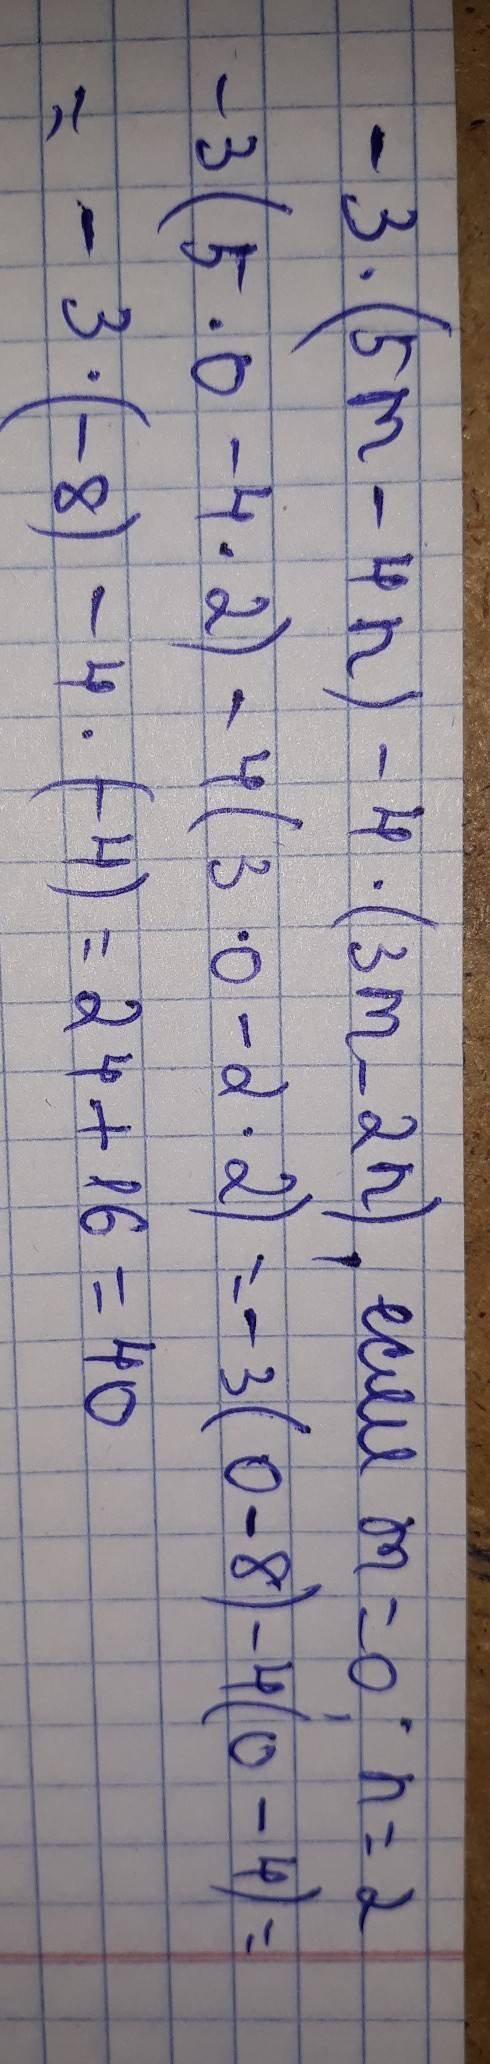 -3·(5m-4n)-4·(3m-2n), если m=0; n=2
-3(5·0-4·2)-4(3·0-2·2)=-3(0-8)-4(0-4)=
=-3·(-8)-4·(-4)=24+16=40